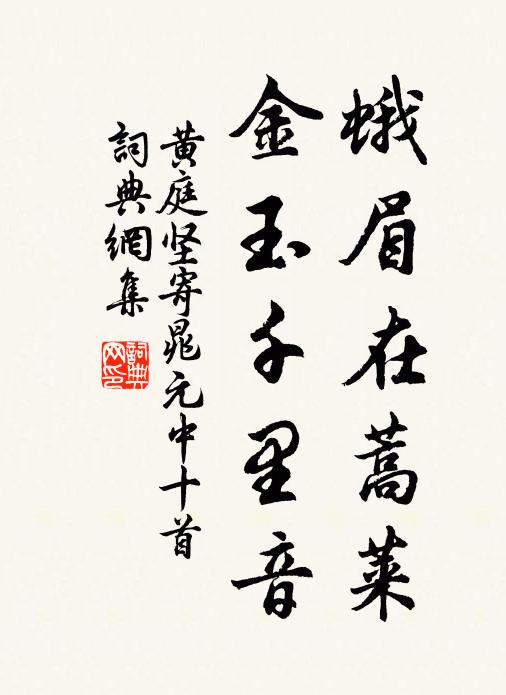 蛾眉在蒿莱
金玉千里音
黄庭坚寄晁元中十首
詞典網集
詞典网印